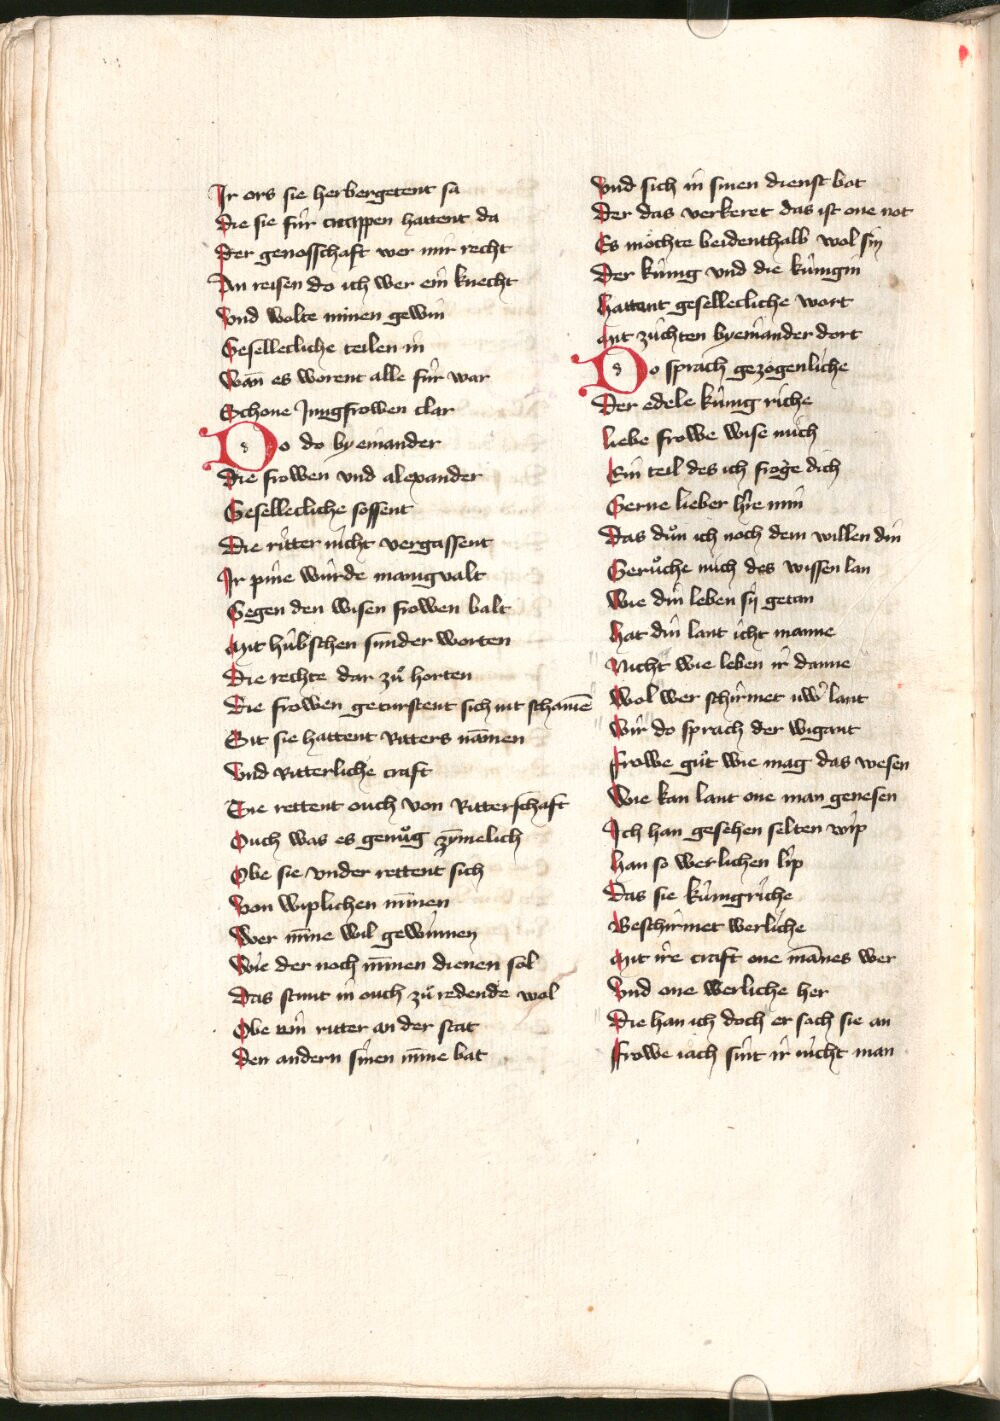 Ir ors sie herbergetent sa
Die sie für cnappen hattent da
Der genosschaft wer mir recht
An reisen do ich wer ein knecht
Vnd wolte minen gewin
Gesellecliche teilen in
Wan̄ es worent alle für war
Schone Jungfrowen clar
Do do by einander
Die frowen vnd alexander
Gesellecliche sossent
Die ritter nicht vergassent
Ir pine würde manigualt
Gegen den wisen frowen balt
Mit hübschen sunder worten
Die rechte dar zuͦ horten
Die frowen geturstent sich nit schamē
Sit sie hattent Ritters nāmen
Vnd Ritterliche craft
Sie rettent ouch von Ritterschaft
Ouch was es genuͦg zȳmelich
Obe sie vnder rettent sich
Von wiplichen mīnen
Wer mīne wil gewinnen
Wie der noch mīnen dienen sol
Das stunt in ouch zuͦ redende wol
Obe ein ritter an der stat
Den andern sinen mīne bat
Vnd sich in sinen dienst bot
Der das verkeret das ist one not
Es möchte beidenthalb wol sin
Der künig vnd die künigin
Hattent gesellecliche wort
Mit züchten by einander dort
Do sprach gezogenliche
Der edele künig riche
Liebe frowe wise mich
Ein teil des ich froge dich
Gerne lieber hre min
Das duͦn ich noch dem willen din
Geruͦche mich des wissen lan
Wie din leben sy getan
Hat din lant icht manne
Nicht wie leben ir danne
Wol wer schirmet uwʼ lant
Wir do sprach der wigant
Frowe guͦt wie mag das wesen
Wie kan lant one man genesen
Ich han gesehen selten wip
Han so werlichen lip
Das sie künigriche
Beschirmet werliche
Mit ire craft one mānes wer
Vnd one werliche her
Die han ich doch er sach sie an
Frowe iach sint ir nicht man